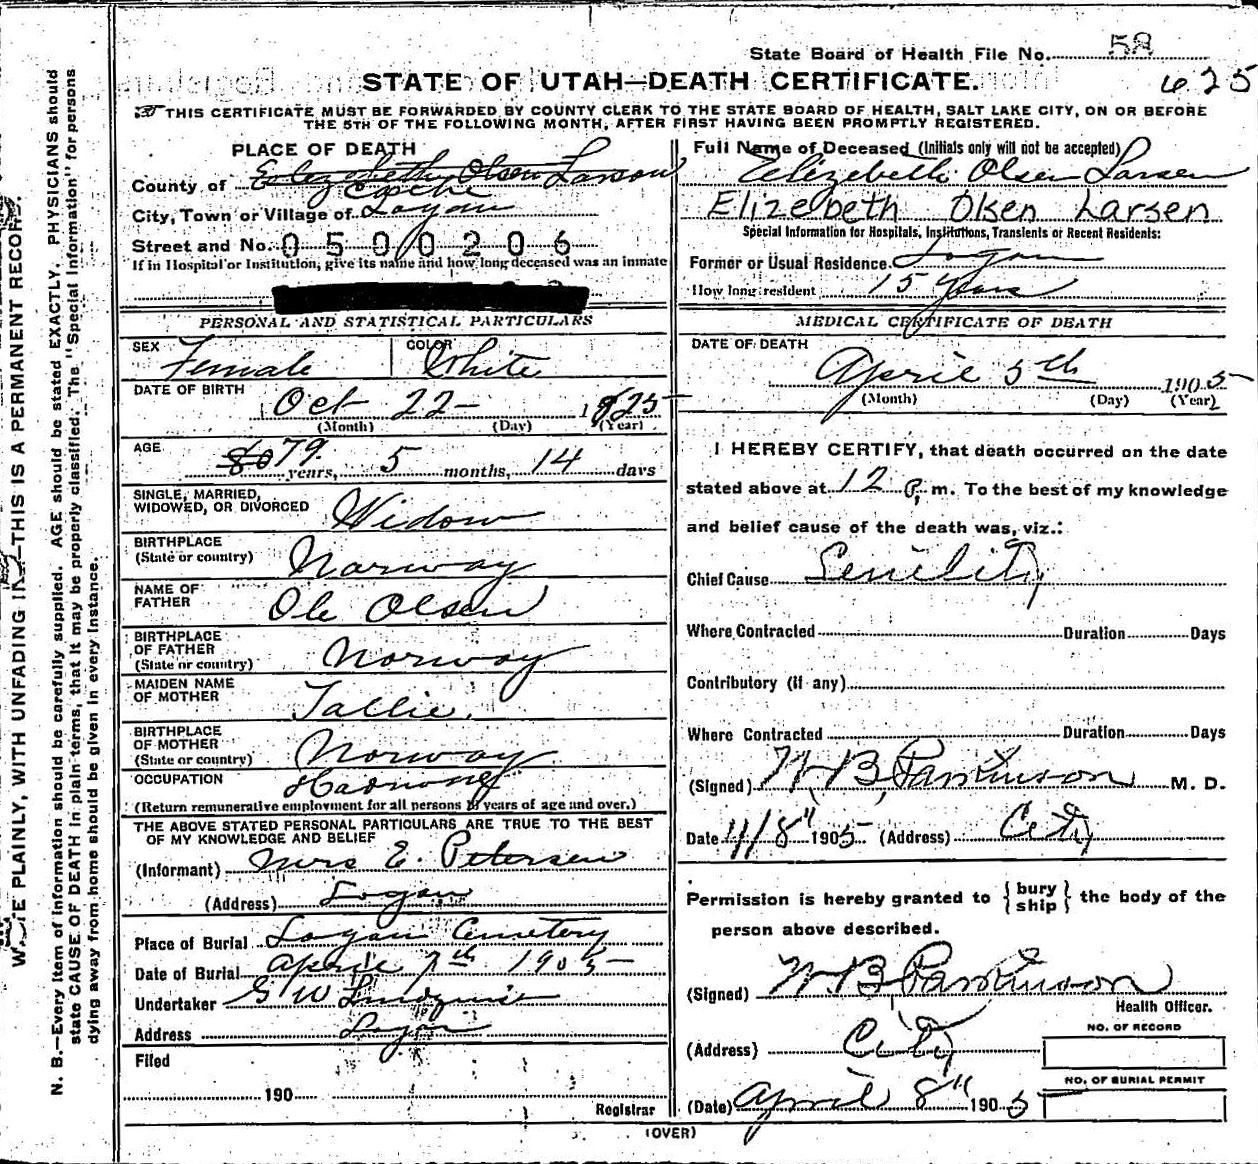 State Board of Health File No. 58
625
STATE OF UTAH—DEATH CERTIFICATE.
THIS CERTIFICATE MUST BE FORWARDED BY COUNTY CLERK TO THE STATE BOARD OF HEALTH, SALT LAKE CITY, ON OR BEFORE
THE 5TH OF THE FOLLOWING MONTH, AFTER FIRST HAVING BEEN PROMPTLY REGISTERED.
PLACE OF DEATH
County of Elizabeth Olsen Larson
Cache
City, Town or Village of Logan
Street and No. 0500206
If in Hospital or Institution, give its name and how long deceased was an inmate
PERSONAL AND STATISTICAL PARTICULARS
SEX Female COLOR White
DATE OF BIRTH Oct 22 1825
(Month) (Day) (Year)
AGE 80 79 years, 5 months, 14 days
SINGLE, MARRIED,
WIDOWED, OR DIVORCED Widow
BIRTHPLACE
(State or country) Norway
NAME OF
FATHER Ole Olsen
BIRTHPLACE
OF FATHER
(State or country) Norway
MAIDEN NAME
OF MOTHER Tallie.
BIRTHPLACE
OF MOTHER
(State or country) Norway
OCCUPATION
(Return remunerative employment for all persons years of age and over.)
THE ABOVE STATED PERSONAL PARTICULARS ARE TRUE TO THE BEST
OF MY KNOWLEDGE AND BELIEF
(Informant) Mrs E. Petersen
(Address) Logan
Place of Burial Logan Cemetery
Date of Burial April 7th 1905
Undertaker G W Lindquist
Address Logan
Filed
190
Registrar
Full Name of Deceased (Initials only will not be accepted)
Elizebeth Olsen Larsen
Elizebeth Olsen Larsen
Special Information for Hospitals, Institutions, Transients or Recent Residents:
Former or Usual Residence Logan
How long resident 15 years
MEDICAL CERTIFICATE OF DEATH
DATE OF DEATH
April 5th 1905
(Month) (Day) (Year)
I HEREBY CERTIFY, that death occurred on the date
stated above at 12 P. m. To the best of my knowledge
and belief cause of the death was, viz.:
Chief Cause Senility
Where Contracted Duration Days
Contributory (if any)
Where Contracted Duration Days
(Signed) W. B. Parkinson M. D.
Date 4/8" 1905 (Address) City
Permission is hereby granted to { bury ship } the body of the
person above described.
(Signed) W. B. Parkinson
Health Officer.
(Address) City
NO. OF RECORD
NO. OF BURIAL PERMIT
(Date) April 8" 1905
(OVER)
PLAINLY, WITH UNFADING INK—THIS IS A PERMANENT RECORD.
N. B.—Every item of information should be carefully supplied. AGE should be stated EXACTLY. PHYSICIANS should
state CAUSE OF DEATH in plain terms, that it may be properly classified. The "Special Information" for persons
dying away from home should be given in every instance.